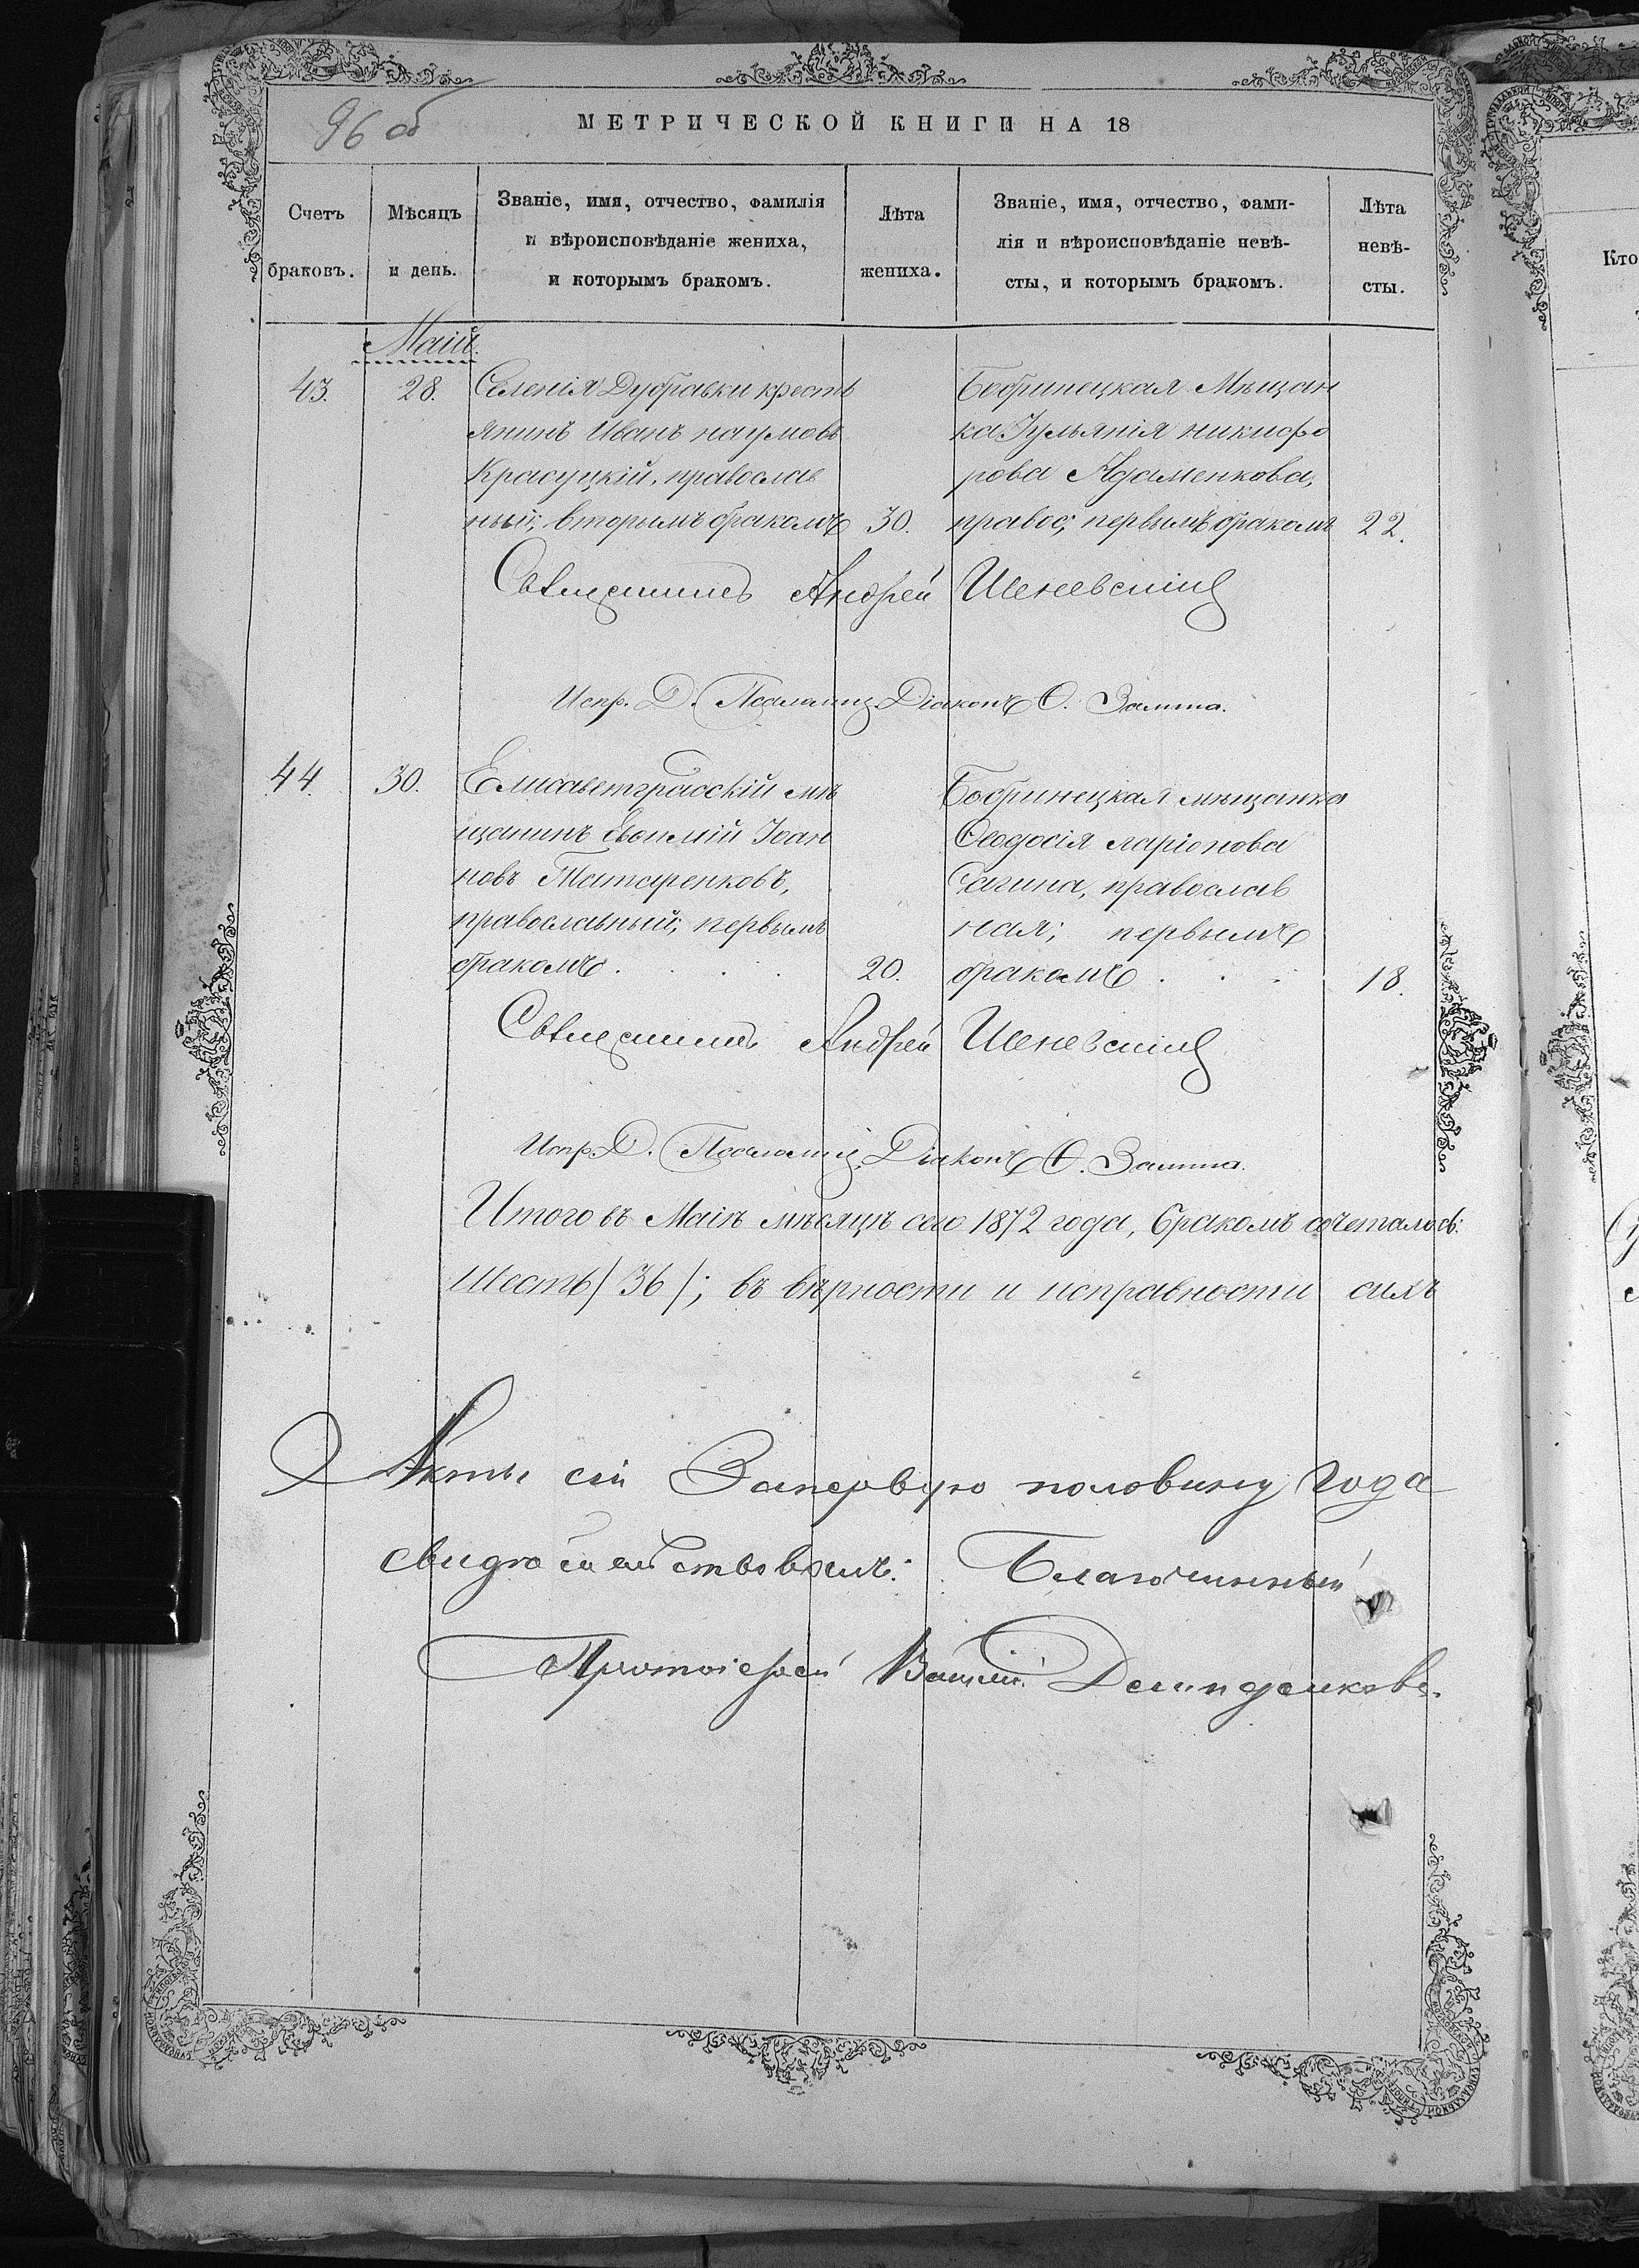 96 об
МЕТРИЧЕСКОЙ КНИГИ НА 18
Счетъ браковъ.
Мѣсяцъ и день.
Званіе, имя, отчество, фамилія
и вѣроисповѣданіе жениха,
и которымъ бракомъ.
Лѣта жениха.
Званіе, имя, отчество, фами-
лія и вѣроисповѣданіе невѣ-
сты, и которымъ бракомъ.
Лѣта невѣ-
сты.
Кто
Маій.
43. 28. Селенія Дубравки кресть
янинъ Иванъ наумовъ
Красуцкій, православ
ный; вторымъ бракомъ 30.
Бобринецкая Мѣщан
ка Іульянія никифо
рова Адаменкова,
правос; первымъ бракомъ 22.
Священникъ Андрей
Испр. Д. Псаломщ. Діаконъ Ѳ.
44. 30. Елисаветградскій мѣ
щанинъ Евфимій Іоан
новъ Татаренковъ,
православный; первымъ
бракомъ . . . . 20.
Бобринецкая мѣщанка
Ѳеодосія ларіонова
Сагина, православ
ная; первымъ
бракомъ . . . 18.
Священникъ Андрей
Испр. Д. Псаломщ. Діаконъ Ѳ.
Итого въ Маіѣ мѣсяцѣ сего 1872 года, бракомъ сочеталось:
шесть / 36 /; въ вѣрности и исправности сихъ
Акты сіи За первую половину года
свидѣтельствовалъ: Благочинный
Протоіерей Василій